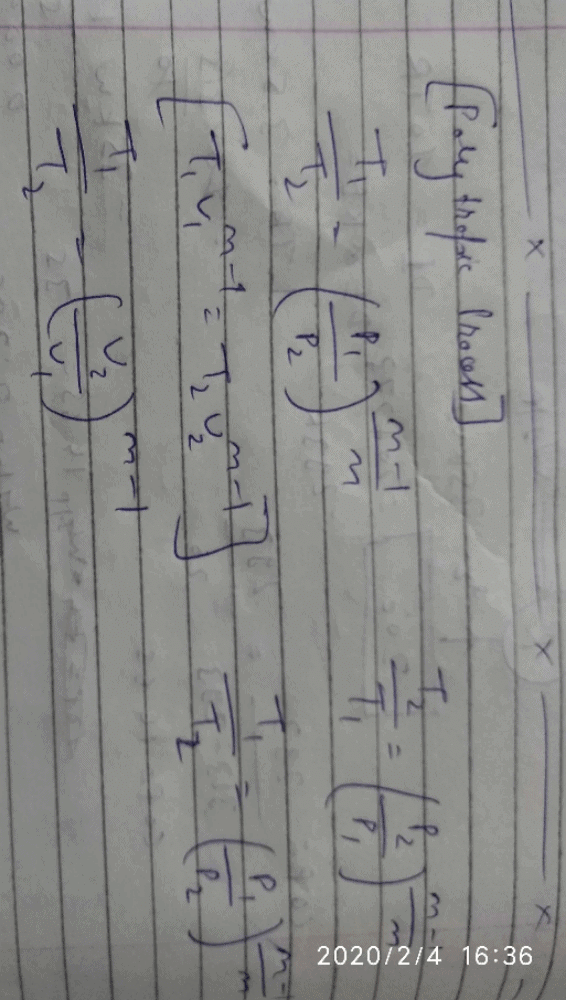 [Polytropic Process]
T₁/T₂ = (P₁/P₂)^(n-1)/n
T₂/T₁ = (P₂/P₁)^(n-1)/n
[T₁V₁^(n-1) = T₂V₂^(n-1)]
T₁/T₂ = (P₁/P₂)^(n-1)/n
T₁/T₂ = (V₂/V₁)^(n-1)
2020/2/4 16:36